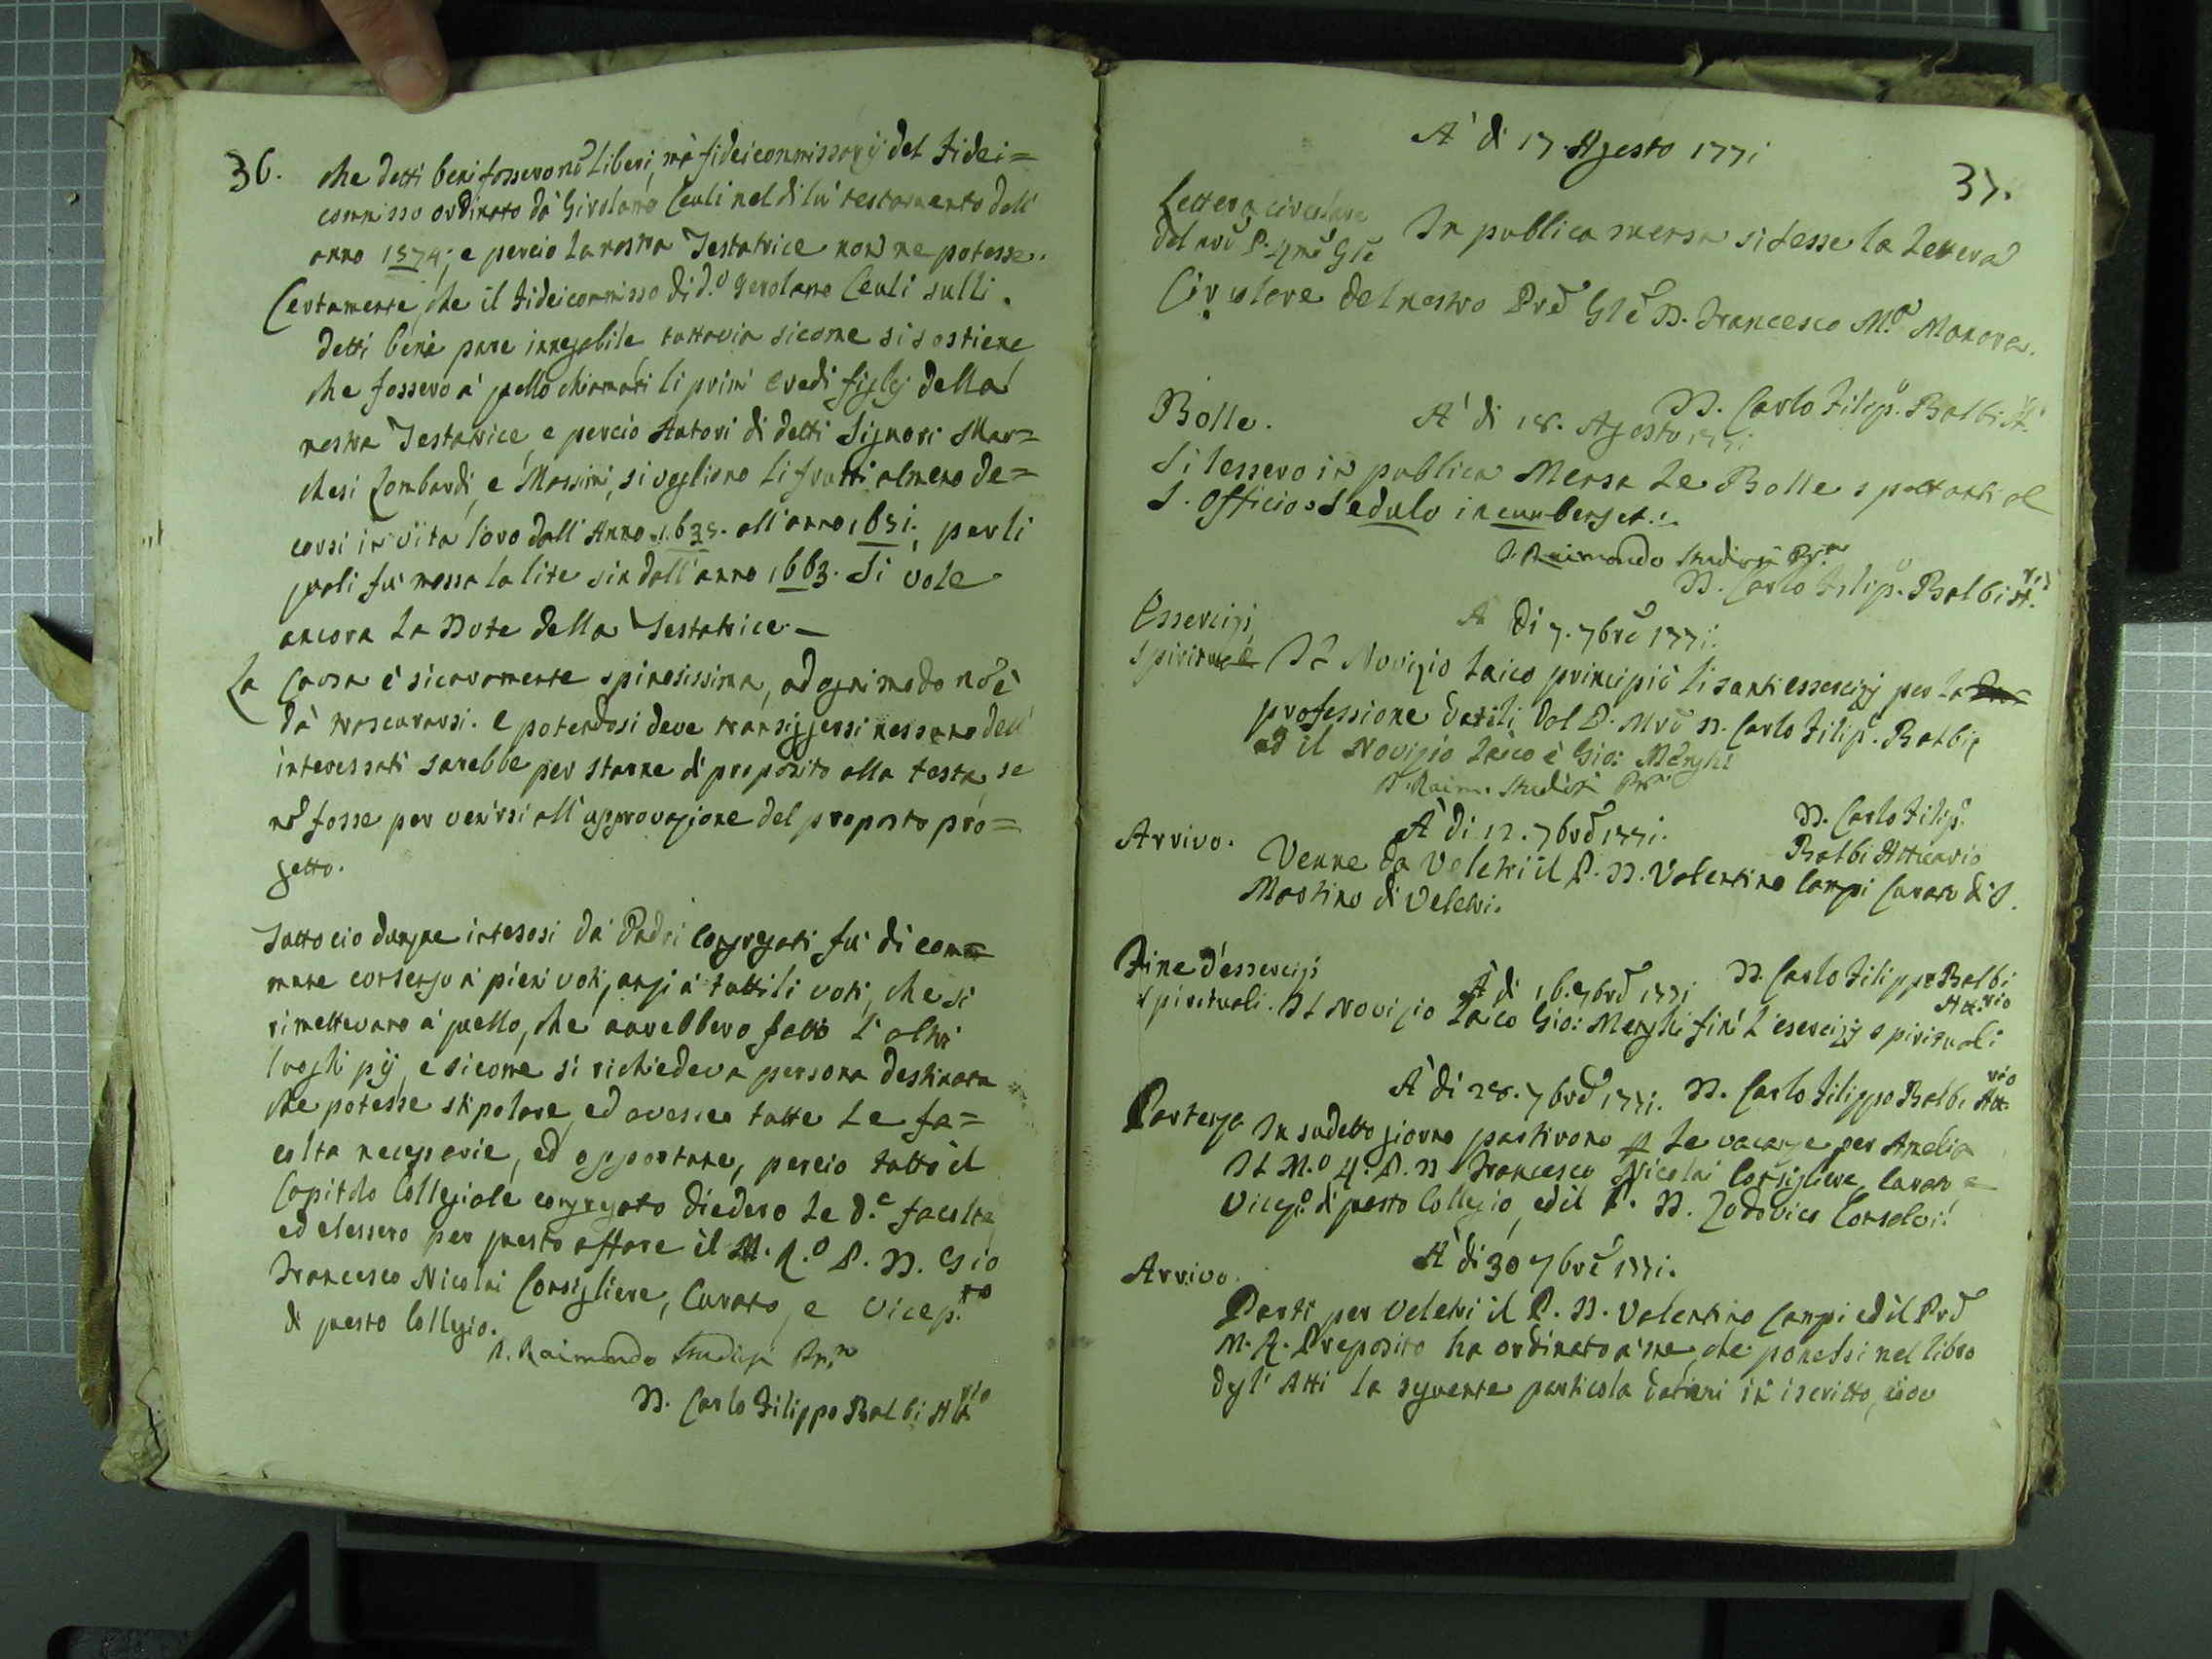 36.
che detti beni fossero nō liberi, mà fideicommissarÿ del Fidei=
commisso ordinato dà Girolamo Ceuli nel di lui testamento dell'
anno 1574; e perciò la nostra Testatrice non ne potesse.
Certamente che il Fideicommisso di d.o Gerolamo Ceuli sulli
detti beni pare innegabile, tuttavia sicome si sostiene
che fossero à quello chiamati li primi Eredi figlj della
nostra Testatrice, e perciò Autori di detti Signori Mar=
chesi Lombardi, e Massimi, si vogliono li frutti almeno de=
corsi in vita loro dall'Anno 1635. all'anno 1651. per li
quali fù mossa la lite sin dall'anno 1663. Si vole
ancora la Dote della Testatrice. —
La Causa è sicuramente spinosissima, ad ogni modo nō è
dà trascurarsi. e potendosi deve transiggersi nessuno dell'
interessati sarebbe per starne di proposito alla testa, se
nō fosse per venirsi all'approvazione del proposto pro=
getto.
Tutto cio dunque intesosi da Padri Congregati fù di com=
mune consenso à pieni voti, anzi à tutti li voti, che si
rimettevano à quello, che avrebbero fatto l'altri
luoghi pÿ, e sicome si richiedeva persona destinata
che potesse stipolare, ed avesse tutte le fa=
colta necessarie, ed opportune, percio tutto il
Capitolo Collegiale congregato diedero le d.e facolta,
ed elessero per questo affare il M. R.o P. D. Gio
Francesco Nicolai Consigliere, Curato, e Vicep.to
di questo Collegio.
D. Raimondo Studiosi
D. Carlo Filippo Balbi Att.rio
A' di 17. Agosto 1771
37.
Lettera circolare
del nrō P. Glē
In publica mensa si lesse la Lettera
Circolare del nostro Prē Glē D. Francesco M.a Manara.
D. Carlo Filip.o Balbi At.
Bolle.
A' di 18. Agosto 1771
Si lessero in publica Mensa le Bolle spettanti al
S. Officio
D. Raimondo Studiosi
D. Carlo Filip.o Balbi At.rio
Essercizi
spirituali
A di 7. 7brē 1771.
Il Novizio Laico principiò li santi essercizÿ per la
professione datili dal P. Mrō D. Carlo Filip.o Balbi,
ed il Novizio Laico è Gio: Menghi
D. Raim. Studiosi
D. Carlo Filip.o
Balbi Attuario
Arrivo.
A' di 12. 7brē 1771.
Venne da Veletri il P. D. Valentino Campi Curato di S.
Martino di Veletri.
D. Carlo Filippo Balbi
Att.rio
Fine d'essercizi
spirituali.
A' di 16. 7brē 1771
Il Novizio Laico Gio: Menghi finì l'esercizÿ spirituali
D. Carlo Filippo Balbi Att.rio
Partenza
A' di 28. 7brē 1771.
In sudetto giorno partirono p le vacanze per Amelia
Il M.o R. P. D. Francesco Nicolai Consigliere, Curato e
Vicep.o di questo Collegio, ed il P. D. Lodovico
A' di 30 7brē 1771.
Arrivo.
Parti per Veletri il P. D. Valentino Campi ed il Prē
M. R. Preposito ha ordinato à me, che ponessi nel libro
degl'Atti la seguente particola datami in iscritto, cioe